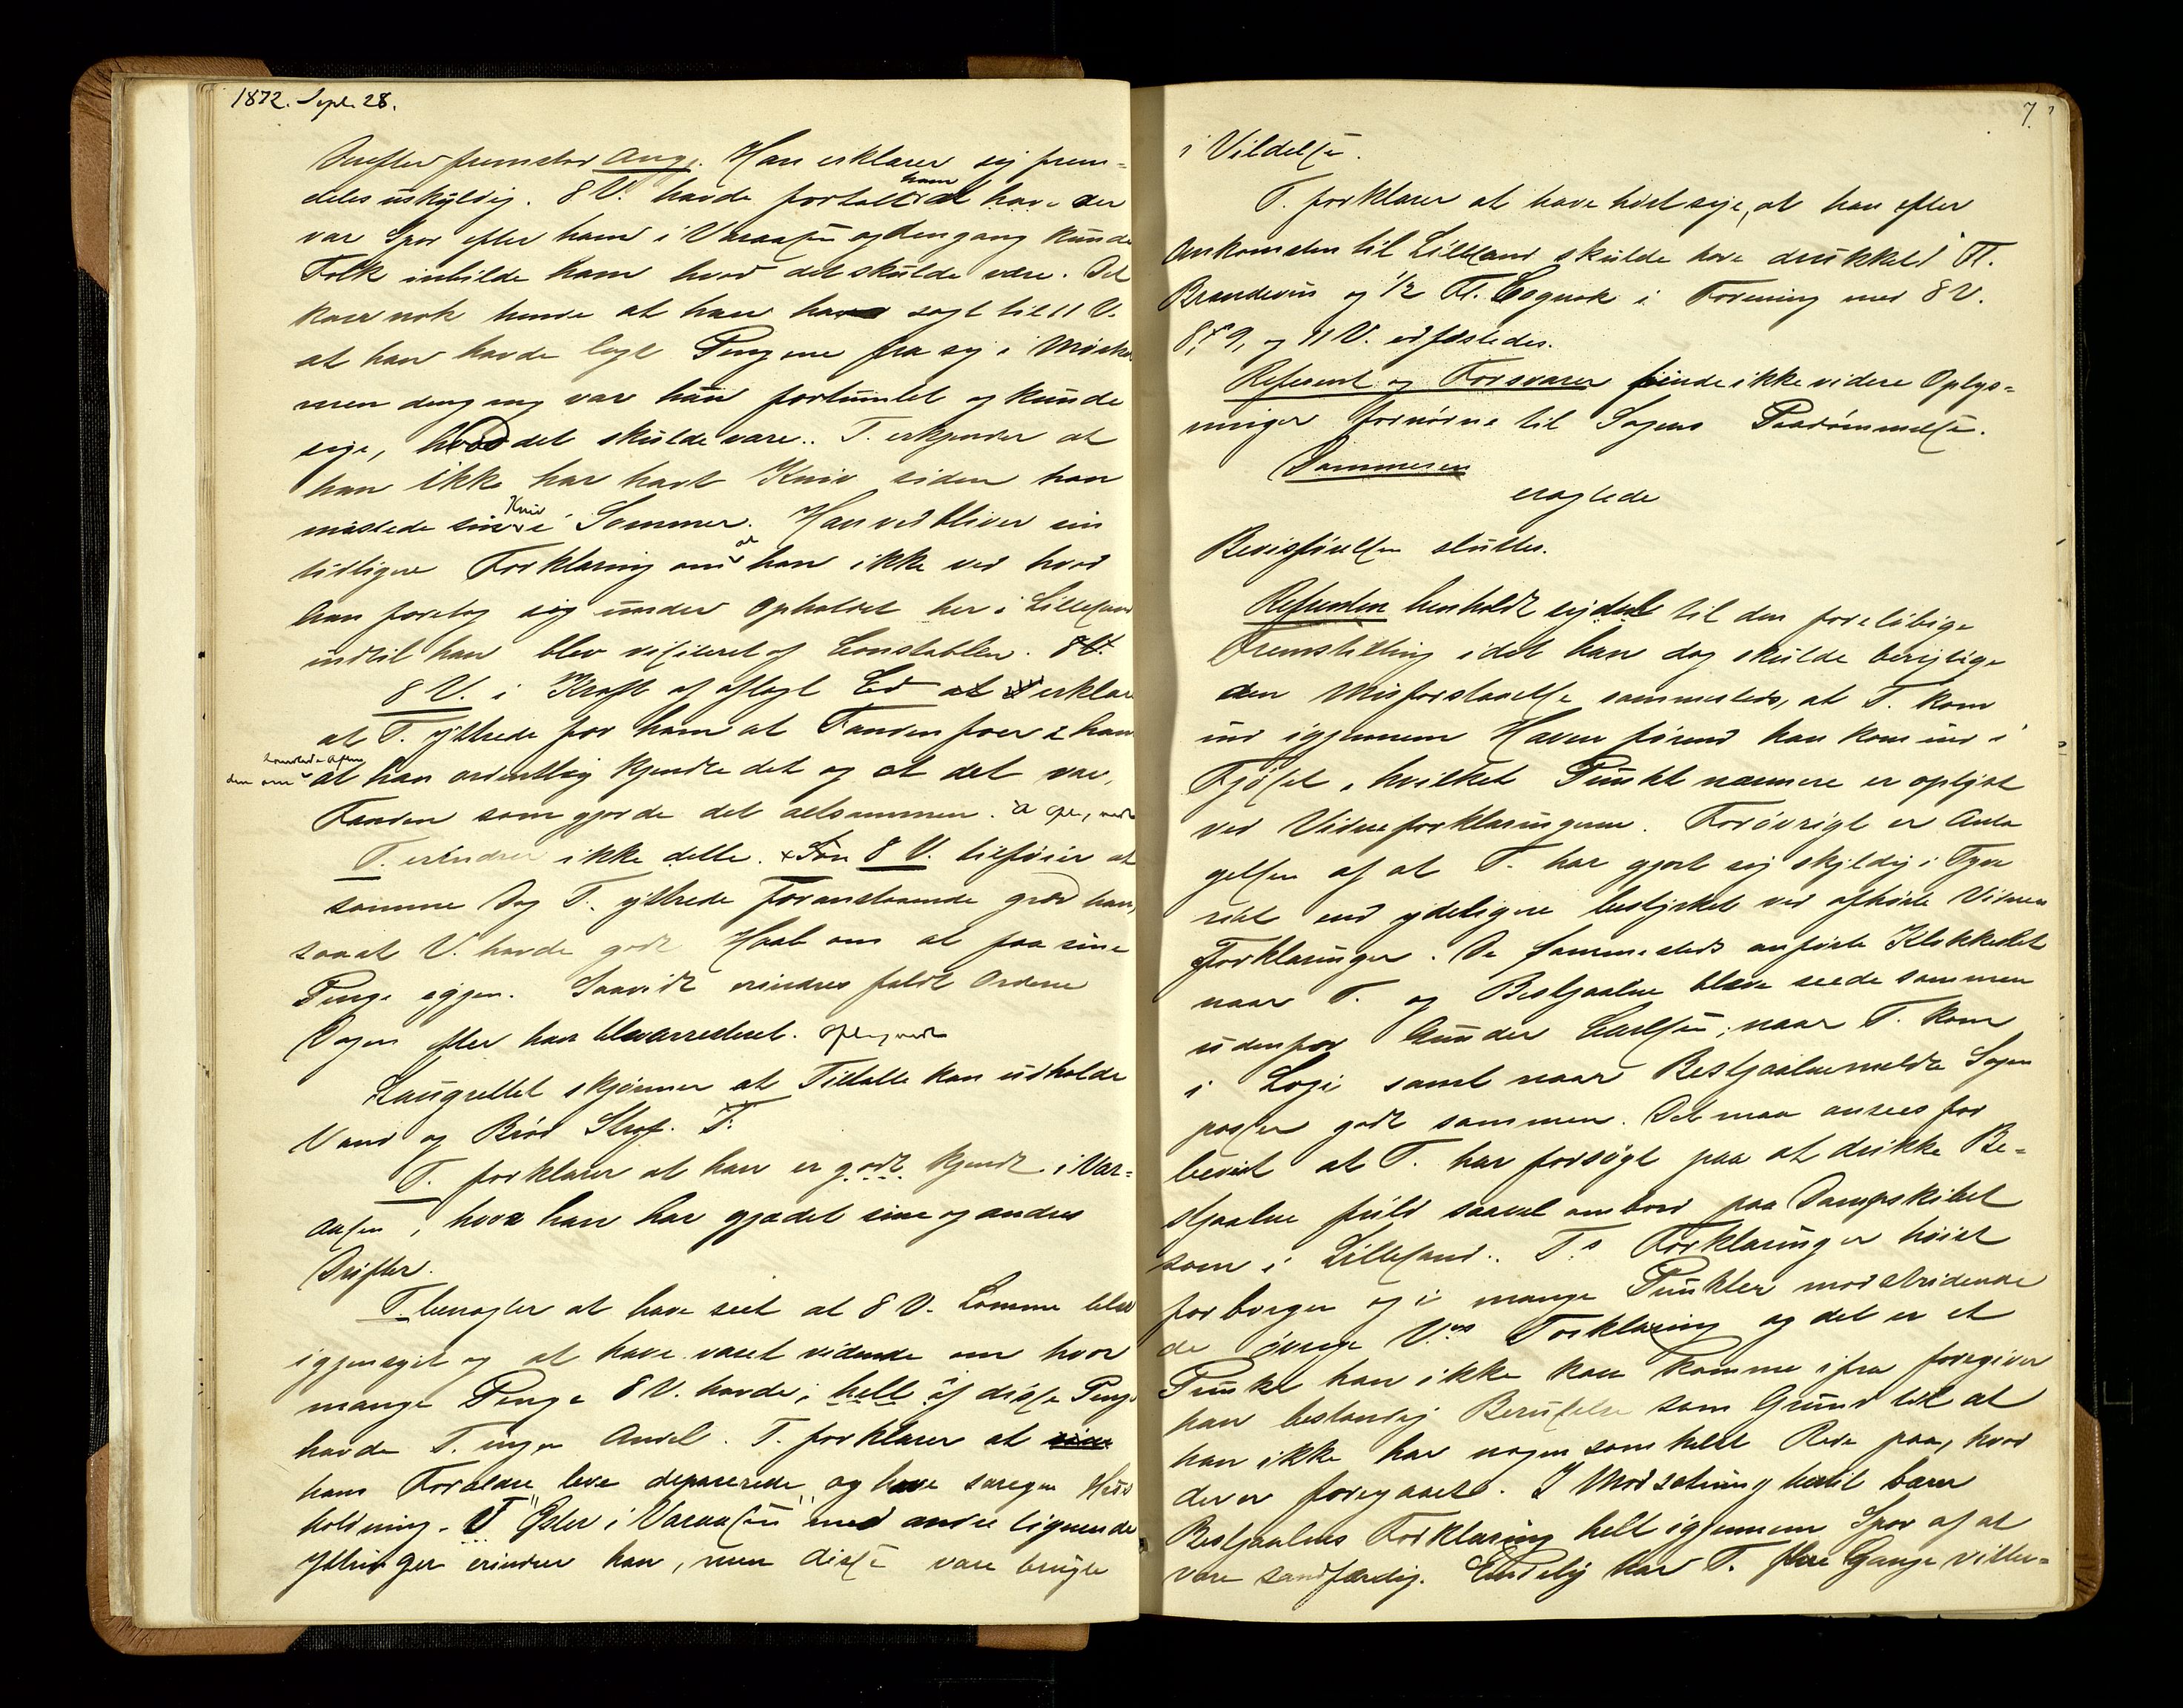 1872. Sept. 28.
Derefter fremstod Ang. Han erklærer sig frem-
deles uskyldig. 8 V. havde fortalt ham at have der
var Spor efter ham i Varaasen og dengang kunde
Folk inbilde ham hvad det skulde være. Det
kan nok hende at han har sagt til 11 V.
at han havde lagt Pengene fra sig i Mørke
men dengang var han fortumlet og kunde
sige, hvad det skulde være. T. erkjender at
han ikke har havt Kniv siden han
mistede sin Kniv i Sommer. Han vedbliver sin
tidligere Forklaring om at han ikke ved hvad
han foretog sig under Opholdet her i Lillesand
indtil han blev visiteret af Constablen.
8 V. i Kraft af aflagt Ed erklær
at T. yttrede for ham at Fanden foer i ham
den omhandlede Aften at han ordentlig kjendte det og at det var
Fanden som gjorde det altsammen.
T. erindrer ikke dette. 8 V. tilføier at
samme Dag T. yttrede foranstaaende græd han,
saa at V. havde godt Haab om at faa sine
Penge igjen. Saavidt erindres faldt Ordene
Dagen efter han blev arresteret.
Laugrettet skjønner at Tiltalte kan udholde
Vand og Brød Straf.
T. forklarer at han er godt kjendt i Var-
aasen, hvor han har gjædet sine og andres
Drifter.
T. benægter at have seet at 8 V. Lomme blev
igjensyet og at have været vidende om hvor
mange Penge 8 V. havde, helt af disse Penge
havde T. ingen Andel. T. forklarer at
hans Forældre leve "separerede" og have særegen Hus
holdning. Gaber i Varaasen med andre lignende
Yttringer erindrer han, men disse vare brugte
7
i Vildelse.
T. forklarer at have hørt sige, at han efter
Ankomsten til Lillesand skulde have drukket 1 Fl.
Brændeviin og 1/2 Fl. Cognak i Forening med 8 V.
8, 9, og 11 V. edfæstedes.
Referent og Forsvarer fandt ikke videre Oplys-
ninger fornødne til Sagens Paadømmelse.
Dommeren
eragtede
Bevisførelsen sluttes.
Referenten henholdt sig til den foreløbige
Fremstilling idet han dog skulde berigtige
den Misforstaaelse sammesteds, at T. kom
ind igjennem Haven førend han kom ind i
Fjøset, hvilket Punkt nærmere er oplyst
ved Vidneforklaringerne. Forøvrigt er Anta
gelsen af at T. har gjort sig skyldig i Tyve
riet end ydeligere bestyrket ved afhørte Vidners
Forklaringer. De sammesteds anførte Klokkeslet
naar T. og Bestjaalne bleve seede sammen
udenfor Gunder Carlsen, naar T. kom
i Logi samt naar Bestjaalne meldte Sagen
passer godt sammen. Det maa ansees for
bevist at T. har forsøgt paa at drikke Be-
stjaalne fuld saavel ombord paa Dampskibet
som i Lillesand. T.s Forklaringer høist
forborgen og i mange Punkter modstridende
de øvrige V.ers Forklaring og det er et
Punkt han ikke kan komme ifra foregiver
han bestandig Beruselse som Grund til at
han ikke har nogensomhelst Rede paa, hvad
der er foregaaet. I Modsætning hertil bærer
Bestjaalnes Forklaring helt igjennem Spor af at
være sandfærdig. Endelig har T. flere Gange vitter-